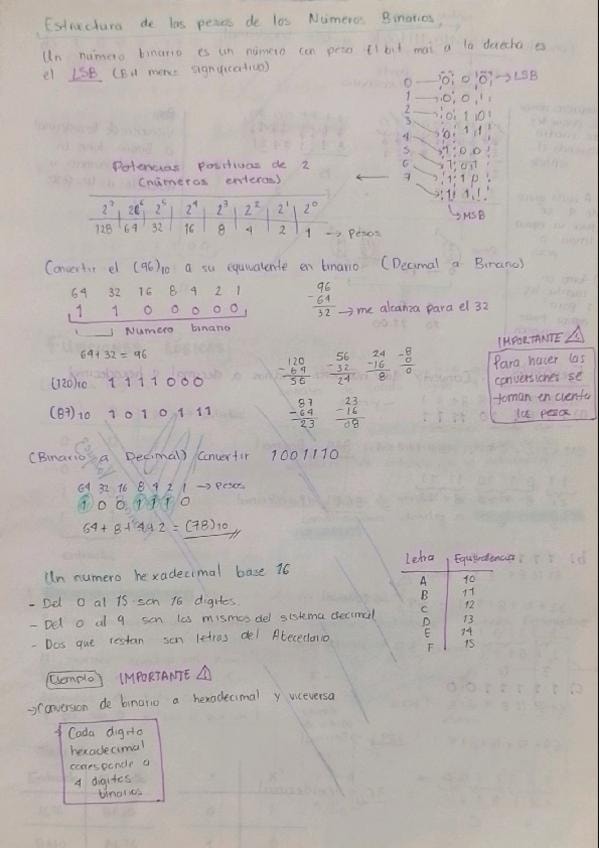 Estructura de los pesos de los Números Binarios.
Un número binario es un número con peso El bit mas a la derecha es
el LSB (Bit menos significativo)
0 → 0 0 0 → LSB
1 → 0 0 1
2 → 0 1 0
3 → 0 1 1
4 → 1 0 0
5 → 1 0 1
6 → 1 1 0
7 → 1 1 1
→ MSB
Potencias positivas de 2
(números enteros)
2⁷ 2⁶ 2⁵ 2⁴ 2³ 2² 2¹ 2⁰
128 64 32 16 8 4 2 1 → Pesos
Convertir el (96)₁₀ a su equivalente en binario (Decimal a Binario)
64 32 16 8 4 2 1
1 1 0 0 0 0 0
Numero binario
96
-64
32 → me alcanza para el 32
64+32 = 96
(120)₁₀ 1 1 1 1 0 0 0
120
-64
56
56
-32
24
24
-16
8
-8
0
0
(87)₁₀ 1 0 1 0 1 1 1
87
-64
23
23
-16
08
IMPORTANTE ⚠
Para hacer las
conversiones se
toman en cuenta
los pesos
(Binario a Decimal) Convertir 1001110
64 32 16 8 4 2 1 → Pesos
1 0 0 1 1 1 0
64 + 8 + 4+ 2 = (78)₁₀
Un numero hexadecimal base 16
- Del 0 al 15 son 16 digitos.
- Del 0 al 9 son los mismos del sistema decimal
- Dos que restan son letras del Abecedario.
Letra Equivalencia
A 10
B 11
C 12
D 13
E 14
F 15
Ejemplo IMPORTANTE ⚠
→ Conversion de binario a hexadecimal y viceversa
→ Cada digito
hexadecimal
corresponde a
4 digitos
binarios